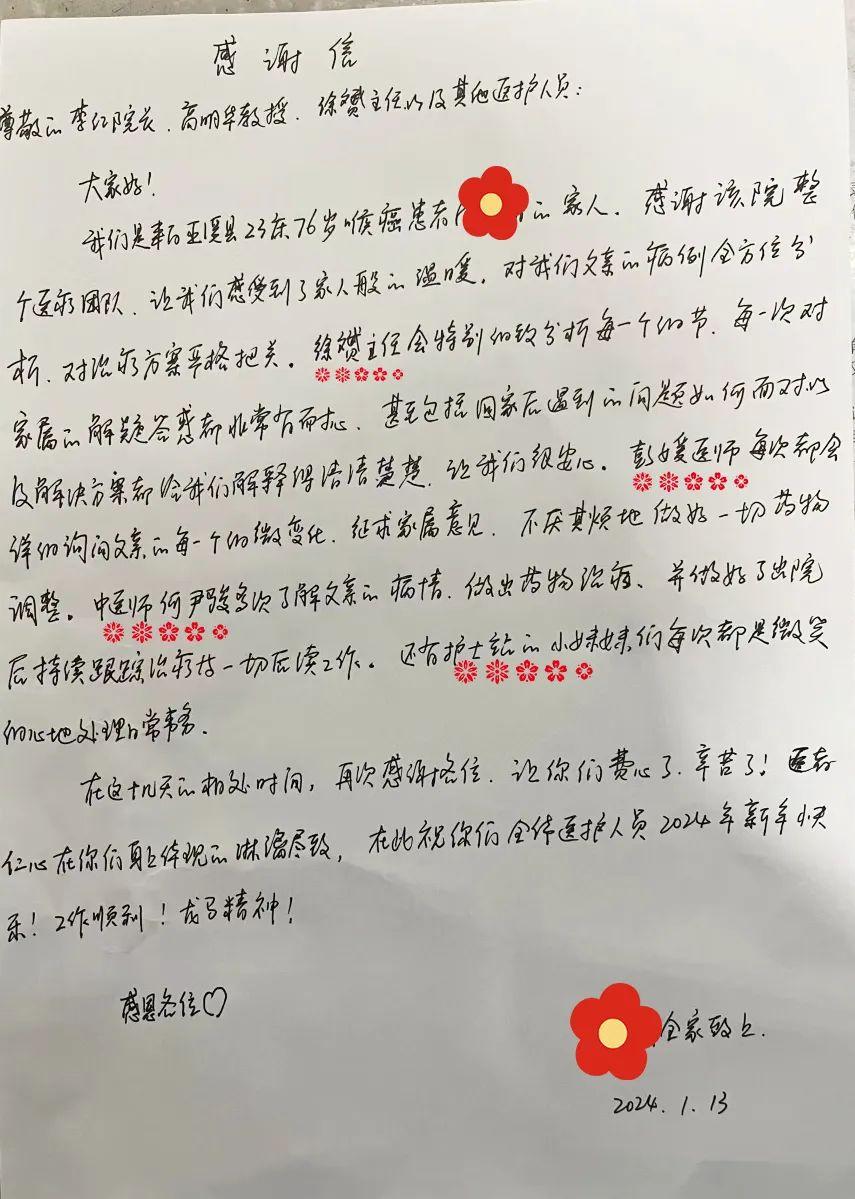 感谢信
尊敬的李仁院长、高明华教授、徐赟主任以及其他医护人员：
大家好！
我们是来自巫溪县23床76岁喉癌患者 的家人。感谢该院整
个医疗团队、让我们感受到了家人般的温暖，对我们父亲的病例全方位分
析、对治疗方案严格把关。徐赟主任会特别细致分析每一个细节、每一次对
家属的解疑答惑都非常有耐心、甚至包括回家后遇到的问题如何面对以
及解决方案都给我们解释得清清楚楚、让我们很安心。彭媛医师每次都会
详细询问父亲的每一个细微变化、征求家属意见、不厌其烦地做好一切药物
调整。中医师何尹骏多次了解父亲的病情、做出药物治疗、并做好了出院
后持续跟踪治疗与一切后续工作。还有护士站的小妹妹们每次都是微笑
细心地处理日常事务。
在这十几天的相处时间，再次感谢各位、让你们费心了、辛苦了！医者
仁心在你们身上体现的淋漓尽致，在此祝你们全体医护人员2024年新年快
乐！工作顺利！龙马精神！
感恩各位♡
全家致上.
2024.1.13